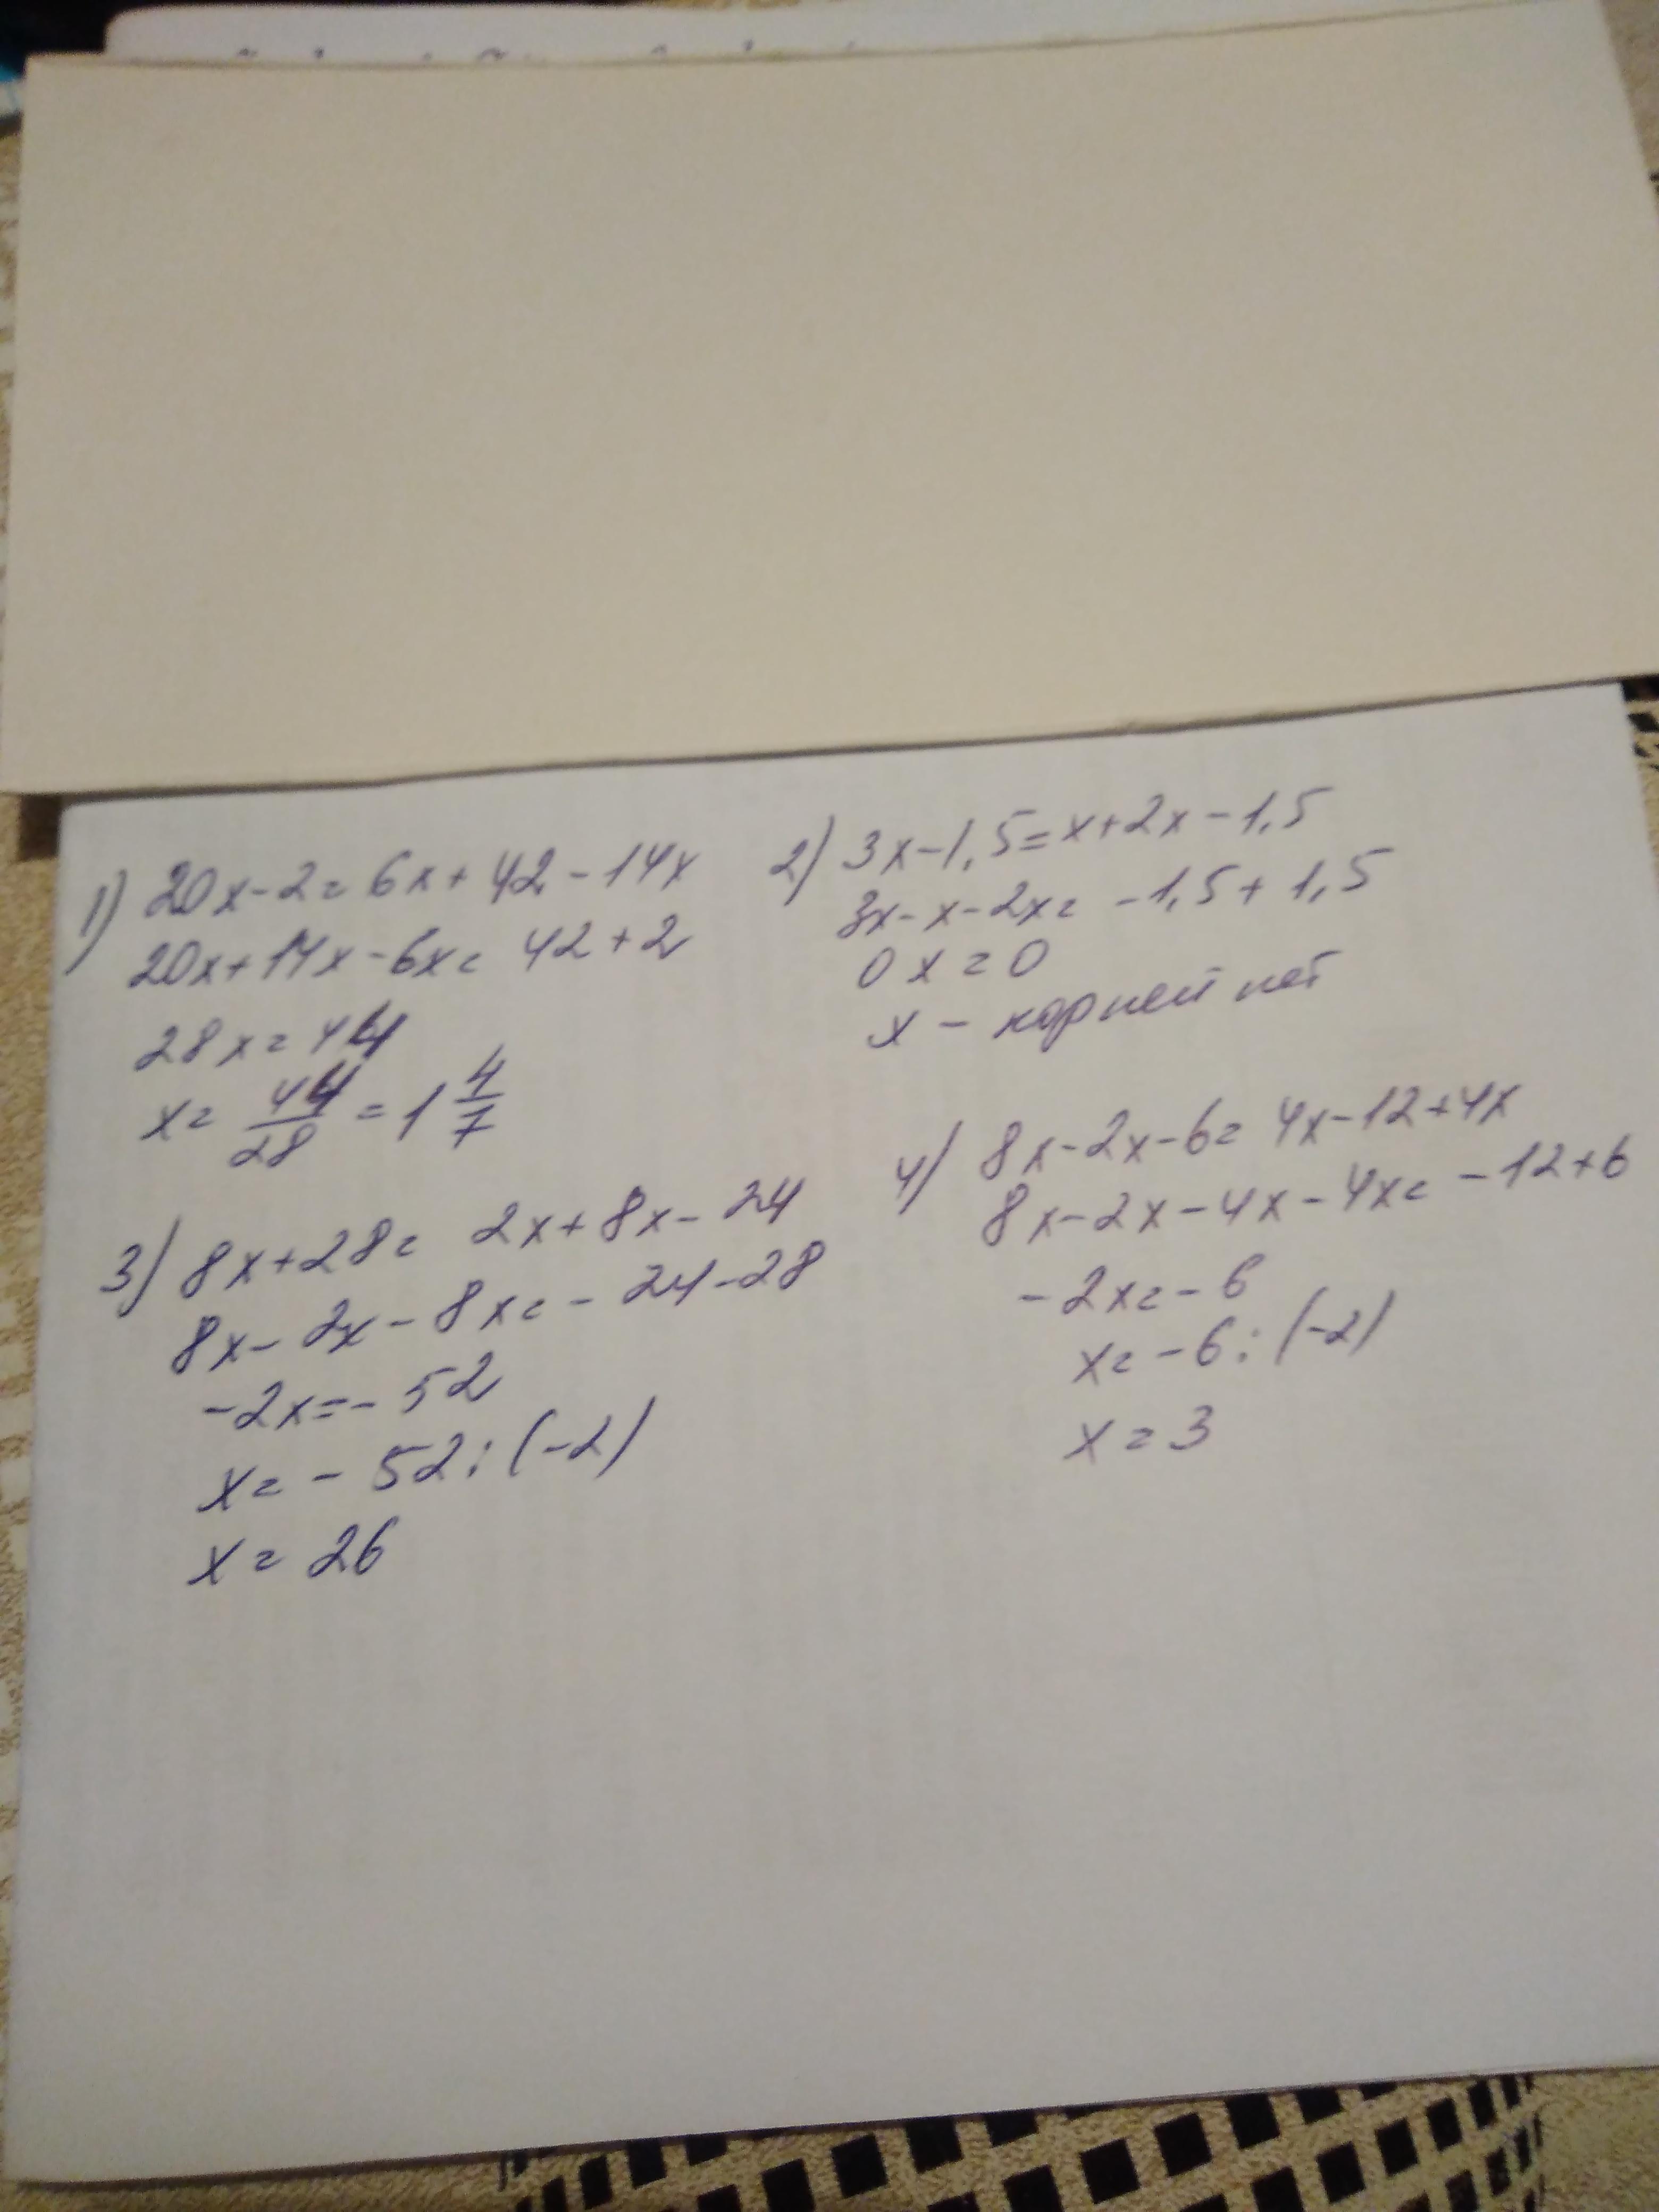 1) 20x-2=6x+42-14x
20x+14x-6x=42+2
28x=44
x=44/28=1 4/7
2) 3x-1,5=x+2x-1,5
3x-x-2x=-1,5+1,5
0x=0
x - корней нет
3) 8x+28=2x+8x-24
8x-2x-8x=-24-28
-2x=-52
x=-52:(-2)
x=26
4) 8x-2x-6=4x-12+4x
8x-2x-4x-4x=-12+6
-2x=-6
x=-6:(-2)
x=3